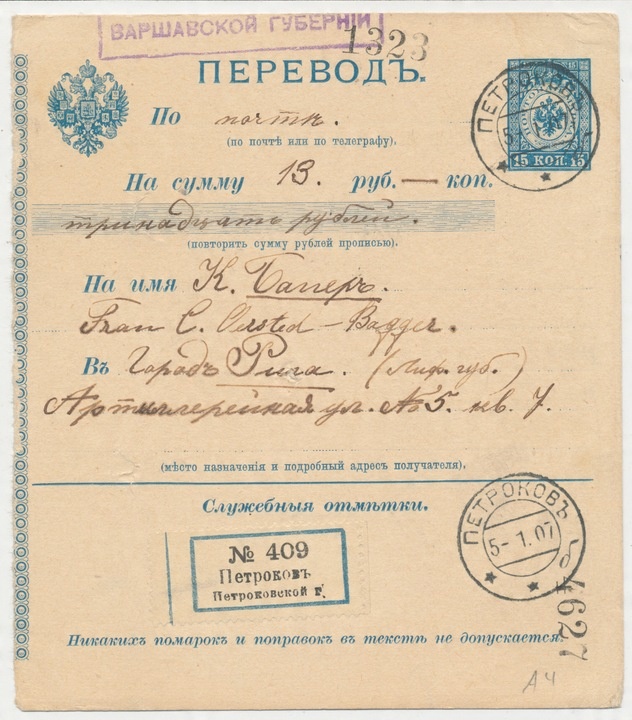 ВАРШАВСКОЙ ГУБЕРНІИ
1323
ПЕРЕВОДЪ.
ПЕТРОКОВЪ
15 КОП. 15
По почтѣ.
(по почтѣ или по телеграфу).
На сумму 13. руб. — коп.
тринадцать рублей.
(повторить сумму рублей прописью).
На имя К. Баггеръ.
Frau C. Oersted - Bagger.
Въ Городъ Рига. (Лиф. губ.)
Артиллерейная ул. № 5. кв. 7.
(мѣсто назначенія и подробный адресъ получателя).
Служебныя отмѣтки.
ПЕТРОКОВЪ
5- 1.07
№ 409
Петроковъ
Петроковской г.
4627
Никакихъ помарокъ и поправокъ въ текстѣ не допускается.
A 4